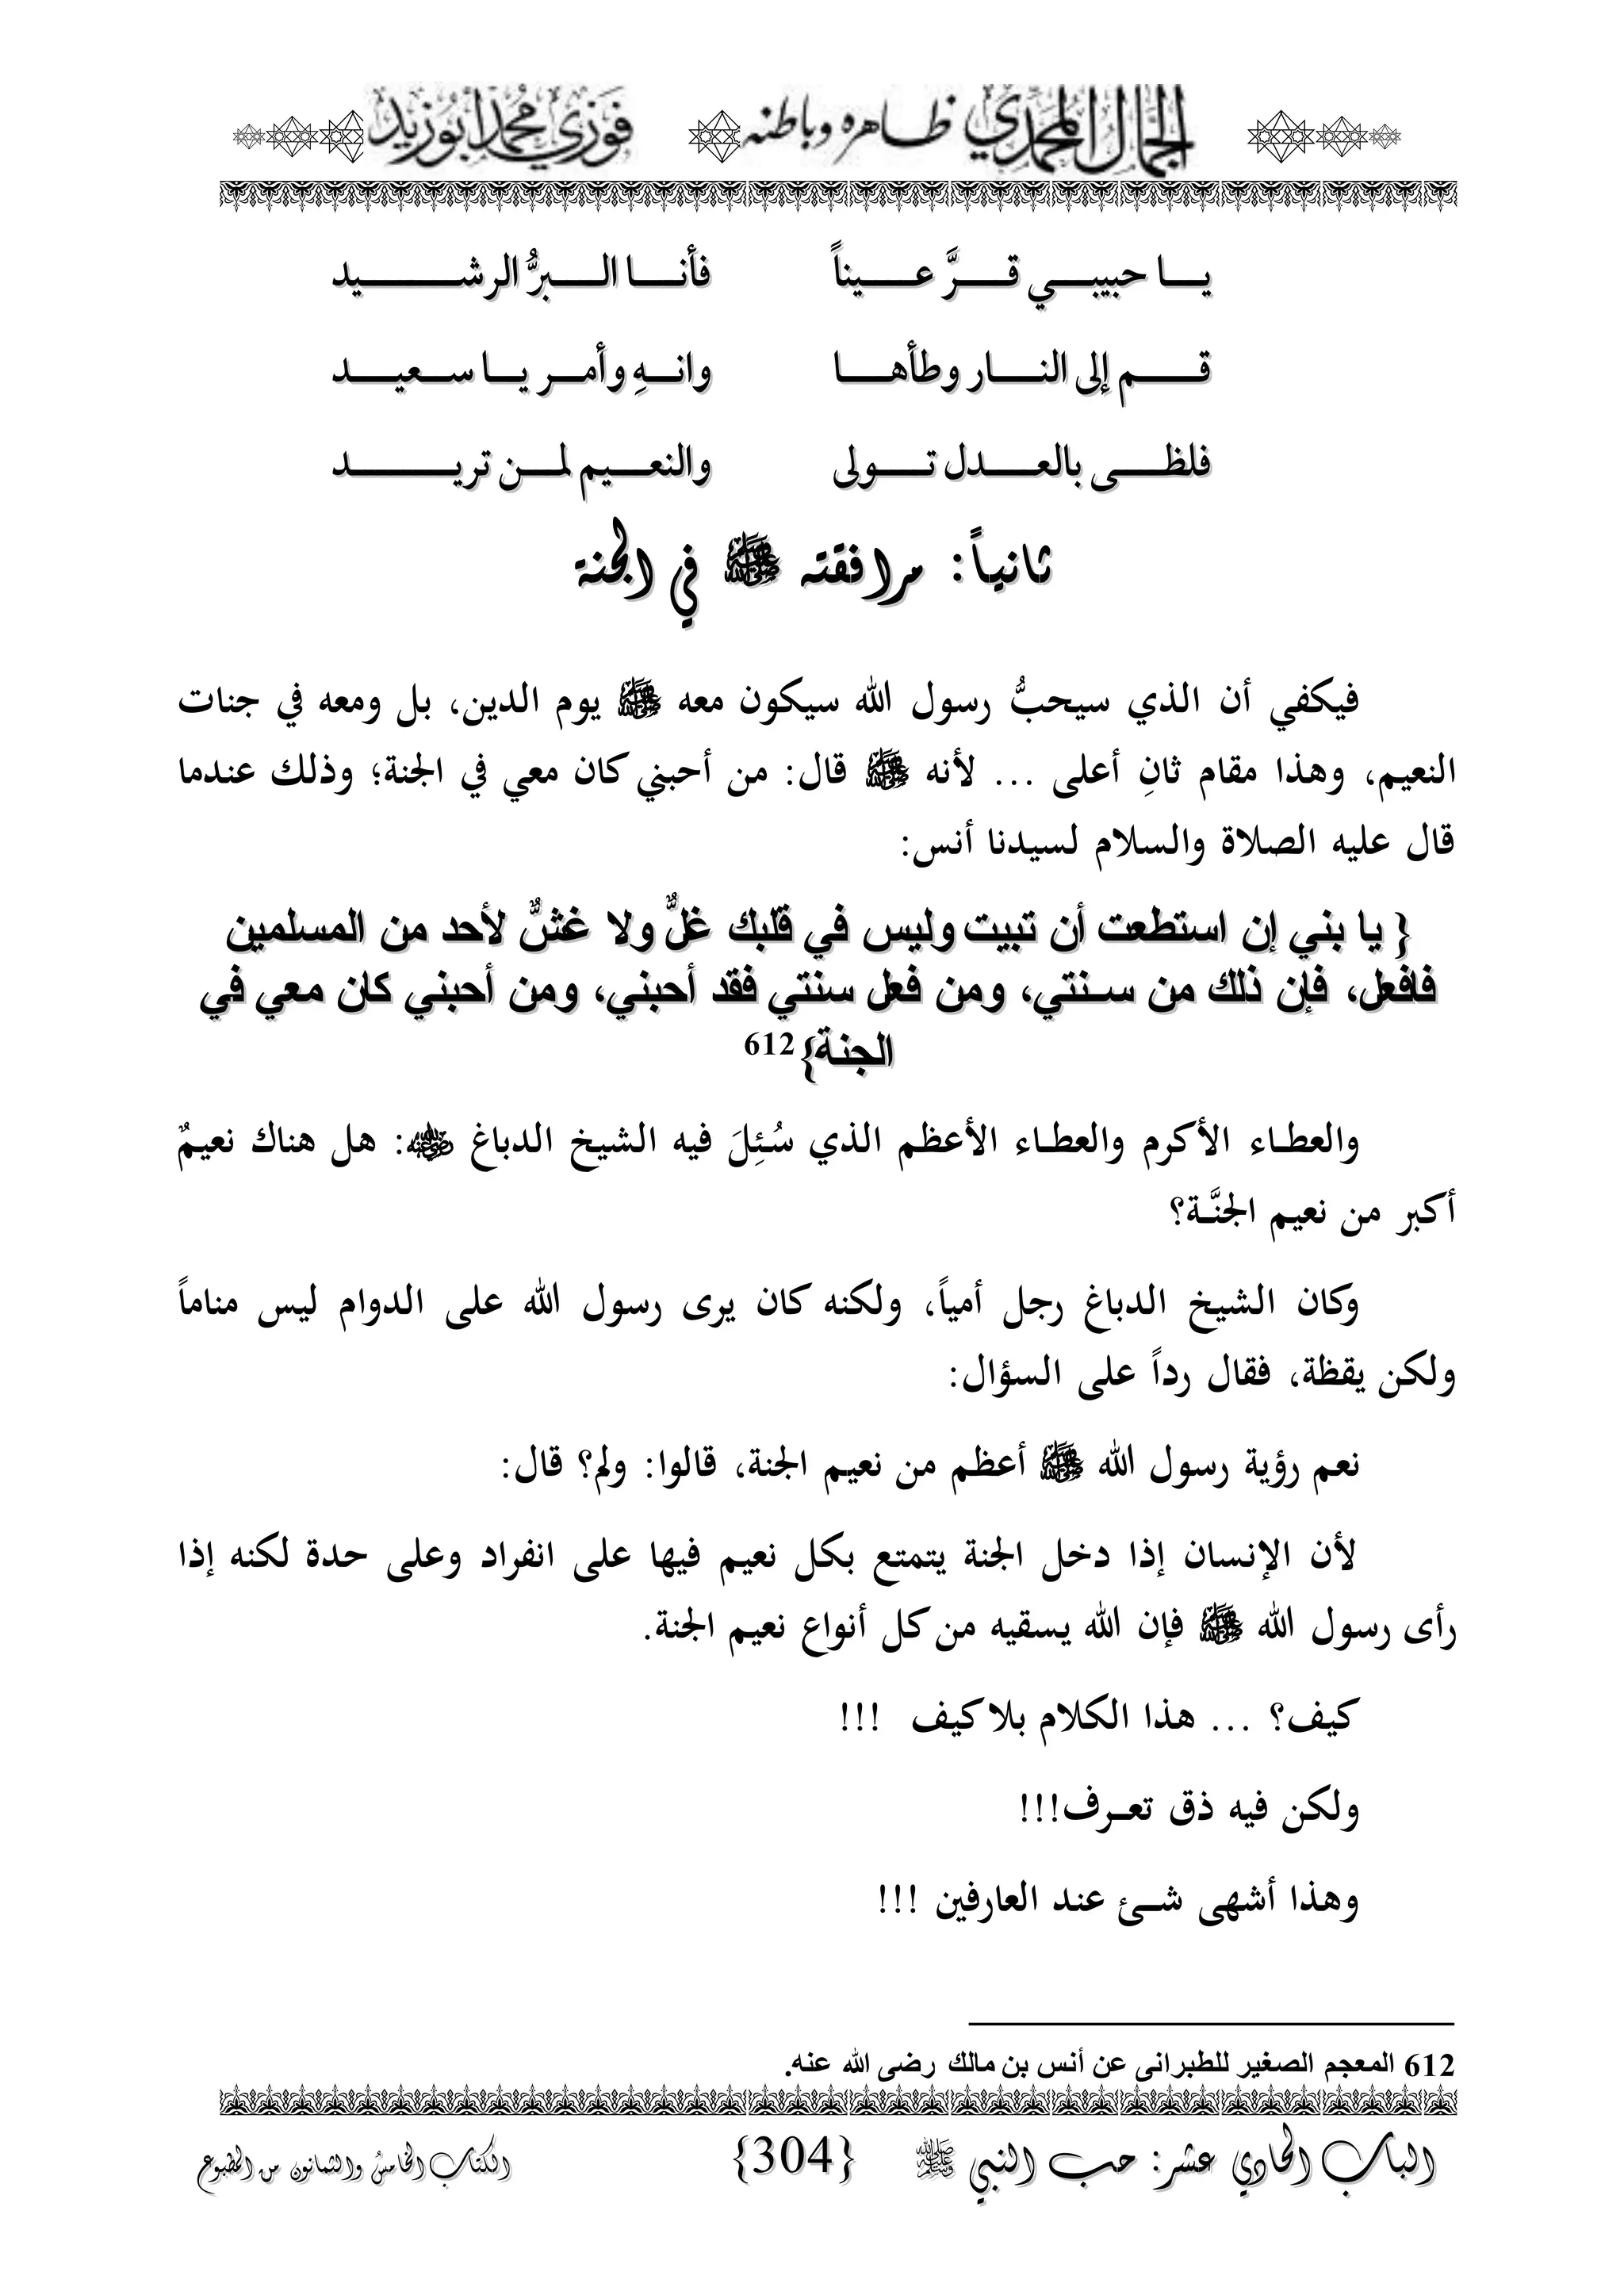 الجمال المحمدي ظاهره وباطنه فوزي محمد أبوزيد
يا حبيبي قرَّ عيناً فأنا البرُّ الرشيد
قم إلى النار وطأها وانهِ وأمر يا سعيد
فلظى بالعدل تولى والنعيم لمن تريد
ثانياً: مرافقته ﷺ في الجنة
فيكفي أن الذي سيحبُّ رسول الله سيكون معه ﷺ يوم الدين، بل ومعه في جنات
النعيم، وهذا مقام ثانِ أعلى ... لأنه ﷺ قال: من أحبني كان معي في الجنة؛ وذلك عندما
قال عليه الصلاة والسلام لسيدنا أنس:
{ يا بني إن استطعت أن تبيت وليس في قلبك غلٌّ ولا غشٌّ لأحد من المسلمين
فافعل، فإن ذلك من سـنتي، ومن فعل سنتي فقد أحبني، ومن أحبني كان معي في
الجنة}612
والعطاء الأكرم والعطاء الأعظم الذي سُئِلَ فيه الشيخ الدباغ رضي الله عنه: هل هناك نعيمٌ
أكبر من نعيم الجنَّـة؟
وكان الشيخ الدباغ رجل أمياً، ولكنه كان يرى رسول الله على الدوام ليس مناماً
ولكن يقظة، فقال رداً على السؤال:
نعم رؤية رسول الله ﷺ أعظم من نعيم الجنة، قالوا: ولم؟ قال:
لأن الإنسان إذا دخل الجنة يتمتع بكل نعيم فيها على انفراد وعلى حدة لكنه إذا
رأى رسول الله ﷺ فإن الله يسقيه من كل أنواع نعيم الجنة.
كيف؟ ... هذا الكلام بلا كيف !!!
ولكن فيه ذق تعـرف!!!
وهذا أشهى شـئ عند العارفين !!!
612 المعجم الصغير للطبرانى عن أنس بن مالك رضى الله عنه.
الباب الحادي عشر: حب النبي ﷺ {304} الكتاب الخامس والثمانون من المطبوع